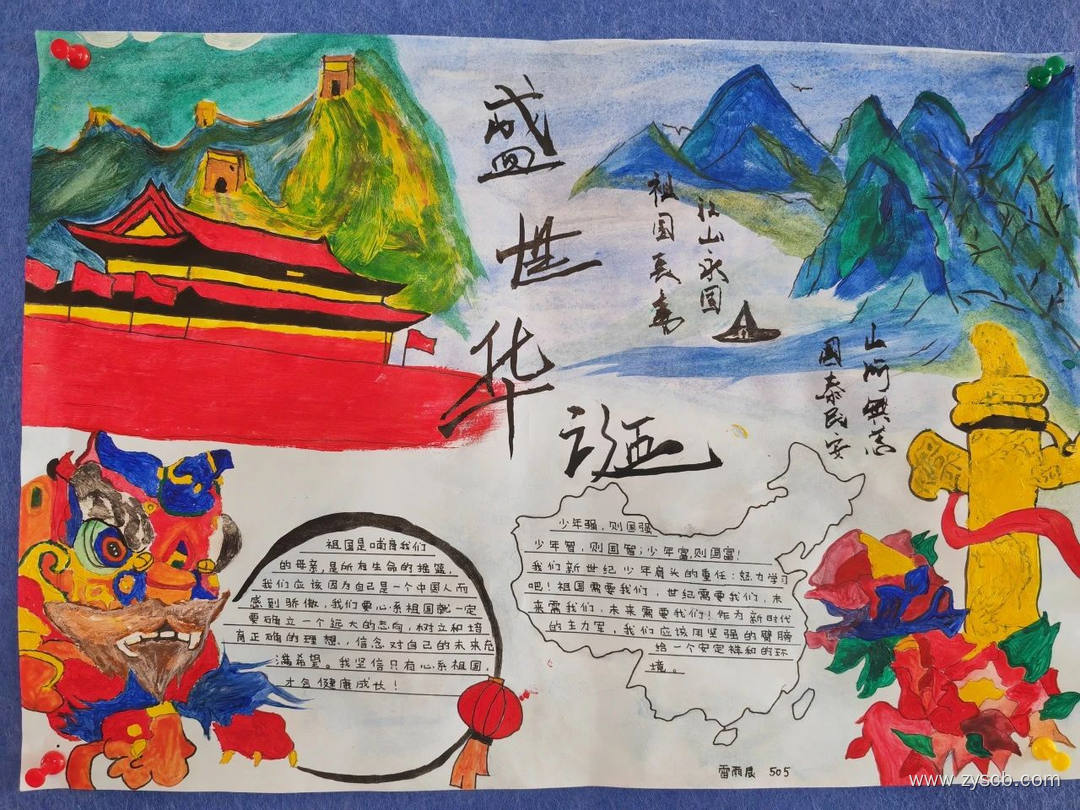 盛世华诞
祖国长寿
江山永固
山河无恙
国泰民安
祖国是哺育我们
的母亲,是所有生命的摇篮。
我们应该因为自己是一个中国人而
感到骄傲,我们要心系祖国就一定
要确立一个远大的志向,树立和培
育正确的理想、信念对自己的未来充
满希望。我坚信只有心系祖国,
才会健康成长!
少年强,则国强
少年智,则国智;少年富,则国富!
我们新世纪少年肩头的重任:努力学习
吧!祖国需要我们,世纪需要我们,未
来需我们,未来需要我们!作为新时代
的主力军,我们应该用坚强的臂膀
给一个安定祥和的环
境。
雷雨晨 505
www.zyscb.com